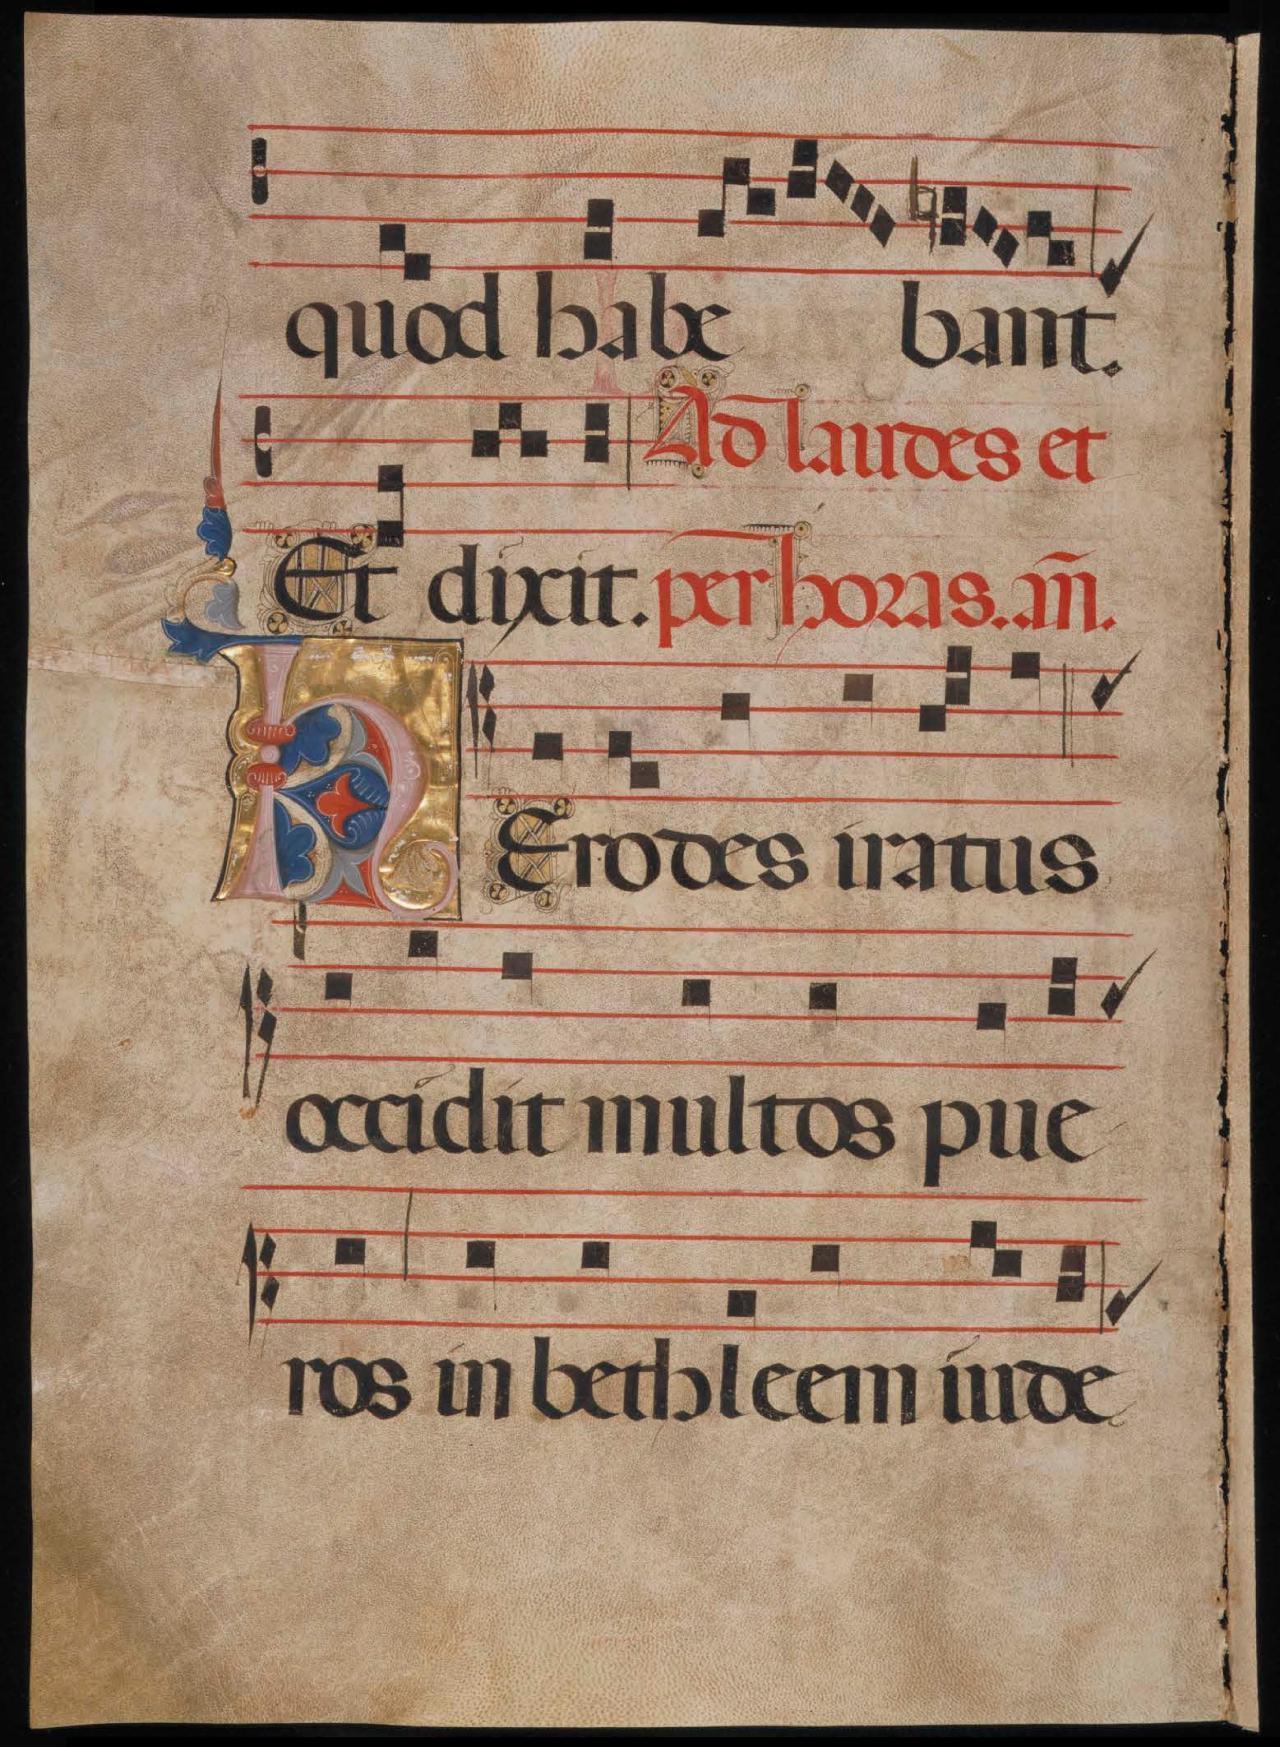 quod habe bant.
Ad laudes et
Et dixit. per horas. añ.
HErodes iratus
occidit multos pue
ros in bethleem iude